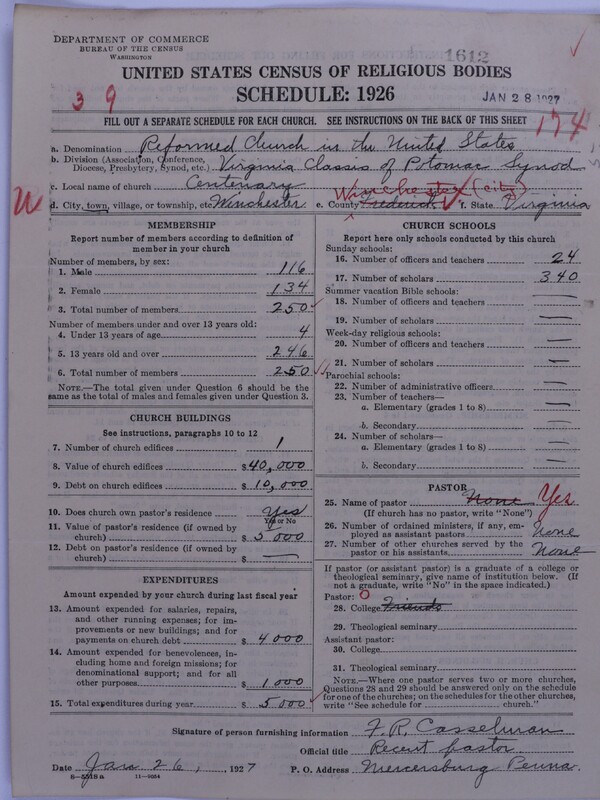 DEPARTMENT OF COMMERCE
BUREAU OF THE CENSUS
WASHINGTON
1612
UNITED STATES CENSUS OF RELIGIOUS BODIES
SCHEDULE: 1926
3 9
JAN 28 1927
FILL OUT A SEPARATE SCHEDULE FOR EACH CHURCH. SEE INSTRUCTIONS ON THE BACK OF THIS SHEET
174
a. Denomination Reformed Church in the United States
b. Division (Association, Conference, Diocese, Presbytery, Synod, etc.) Virginia Classis of Potomac Synod
c. Local name of church Centenary
Winchester (city)
W
d. City, town, village, or township, etc. Winchester e. County Frederick f. State Virginia
MEMBERSHIP
Report number of members according to definition of
member in your church
Number of members, by sex:
1. Male 116
2. Female 134
3. Total number of members 250
Number of members under and over 13 years old:
4. Under 13 years of age 4
5. 13 years old and over 246
6. Total number of members 250
NOTE.—The total given under Question 6 should be the
same as the total of males and females given under Question 3.
CHURCH BUILDINGS
See instructions, paragraphs 10 to 12
7. Number of church edifices 1
8. Value of church edifices $40,000
9. Debt on church edifices $10,000
10. Does church own pastor's residence? Yes
Yes or No
11. Value of pastor's residence (if owned by
church) $5 000
12. Debt on pastor's residence (if owned by
church) $ —
EXPENDITURES
Amount expended by your church during last fiscal year
13. Amount expended for salaries, repairs,
and other running expenses; for im-
provements or new buildings; and for
payments on church debt $4 000
14. Amount expended for benevolences, in-
cluding home and foreign missions; for
denominational support; and for all
other purposes $1 000
15. Total expenditures during year $5 000
CHURCH SCHOOLS
Report here only schools conducted by this church
Sunday schools:
16. Number of officers and teachers 24
17. Number of scholars 340
Summer vacation Bible schools:
18. Number of officers and teachers —
19. Number of scholars —
Week-day religious schools:
20. Number of officers and teachers —
21. Number of scholars —
Parochial schools:
22. Number of administrative officers —
23. Number of teachers—
a. Elementary (grades 1 to 8) —
b. Secondary —
24. Number of scholars—
a. Elementary (grades 1 to 8) —
b. Secondary —
PASTOR
25. Name of pastor None Yes
(If church has no pastor, write "None")
26. Number of ordained ministers, if any, em-
ployed as assistant pastors None
27. Number of other churches served by the
pastor or his assistants None
If pastor (or assistant pastor) is a graduate of a college or
theological seminary, give name of institution below. (If
not a graduate, write "No" in the space indicated.)
Pastor: 0
28. College
29. Theological seminary
Assistant pastor:
30. College
31. Theological seminary
NOTE.—Where one pastor serves two or more churches,
Questions 28 and 29 should be answered only on the schedule
for one of the churches; on the schedules for the other churches,
write "See schedule for church."
Signature of person furnishing information F. R. Casselman
Official title Recent pastor
Date Jan 26, 1927 P. O. Address Mercersburg Penna.
8—5518 a 11—9054